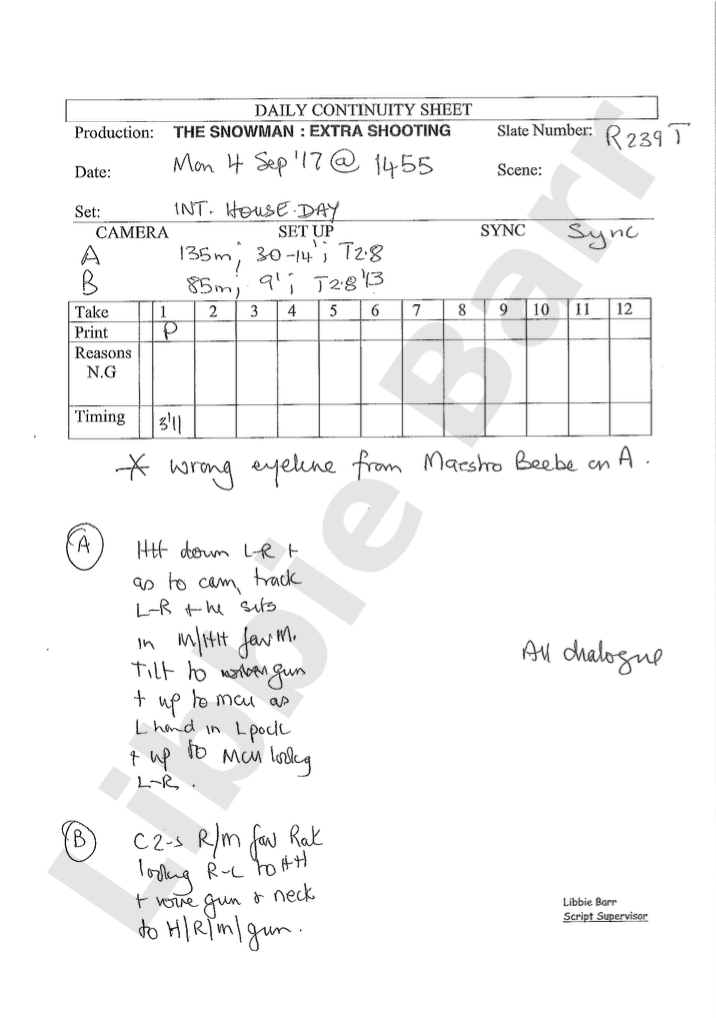 DAILY CONTINUITY SHEET
Production: THE SNOWMAN : EXTRA SHOOTING Slate Number: R239T
Date: Mon 4 Sep '17 @ 1455 Scene:
Set: INT. HOUSE. DAY
CAMERA SET UP SYNC Sync
A 135m; 30-14'; T2.8
B 85m; 9'; T2.8 1/3
Take 1 2 3 4 5 6 7 8 9 10 11 12
Print P
Reasons
N.G
Timing 3'11
* wrong eyeline from Maestro Beebe on A.
A HH down L-R +
as to cam, track
L-R + he sits
in M/HH fav M.
Tilt to gun
+ up to mcu as
L hand in L pock
+ up to MCU lookg
L-R.
All dialogue
B C2-s R/M fav Rak
lookg R-L to HH
+ wire gun & neck
to H/R/m/gun.
Libbie Barr
Script Supervisor
Libbie Barr